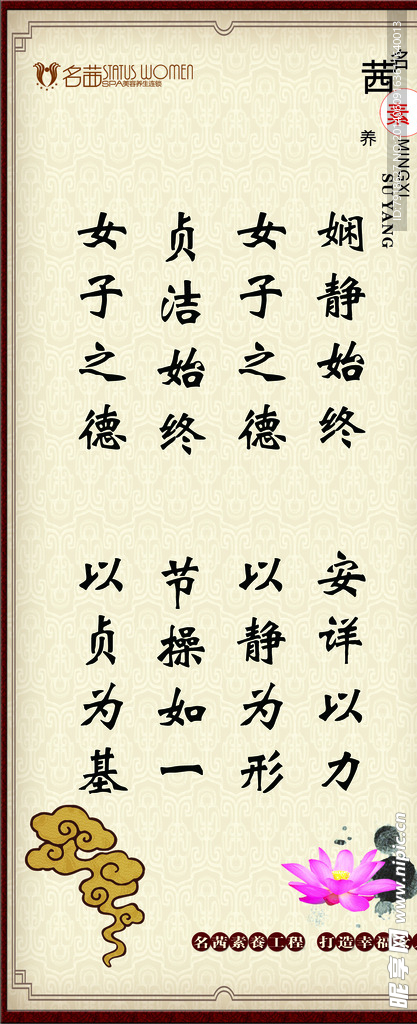 名茜STATUS WOMEN
SPA美容养生连锁
茜
素
养
MINGXI
SU YANG
娴静始终 安详以力
女子之德 以静为形
贞洁始终 节操如一
女子之德 以贞为基
名茜素養工程 打造幸福
昵享网 www.nipic.cn